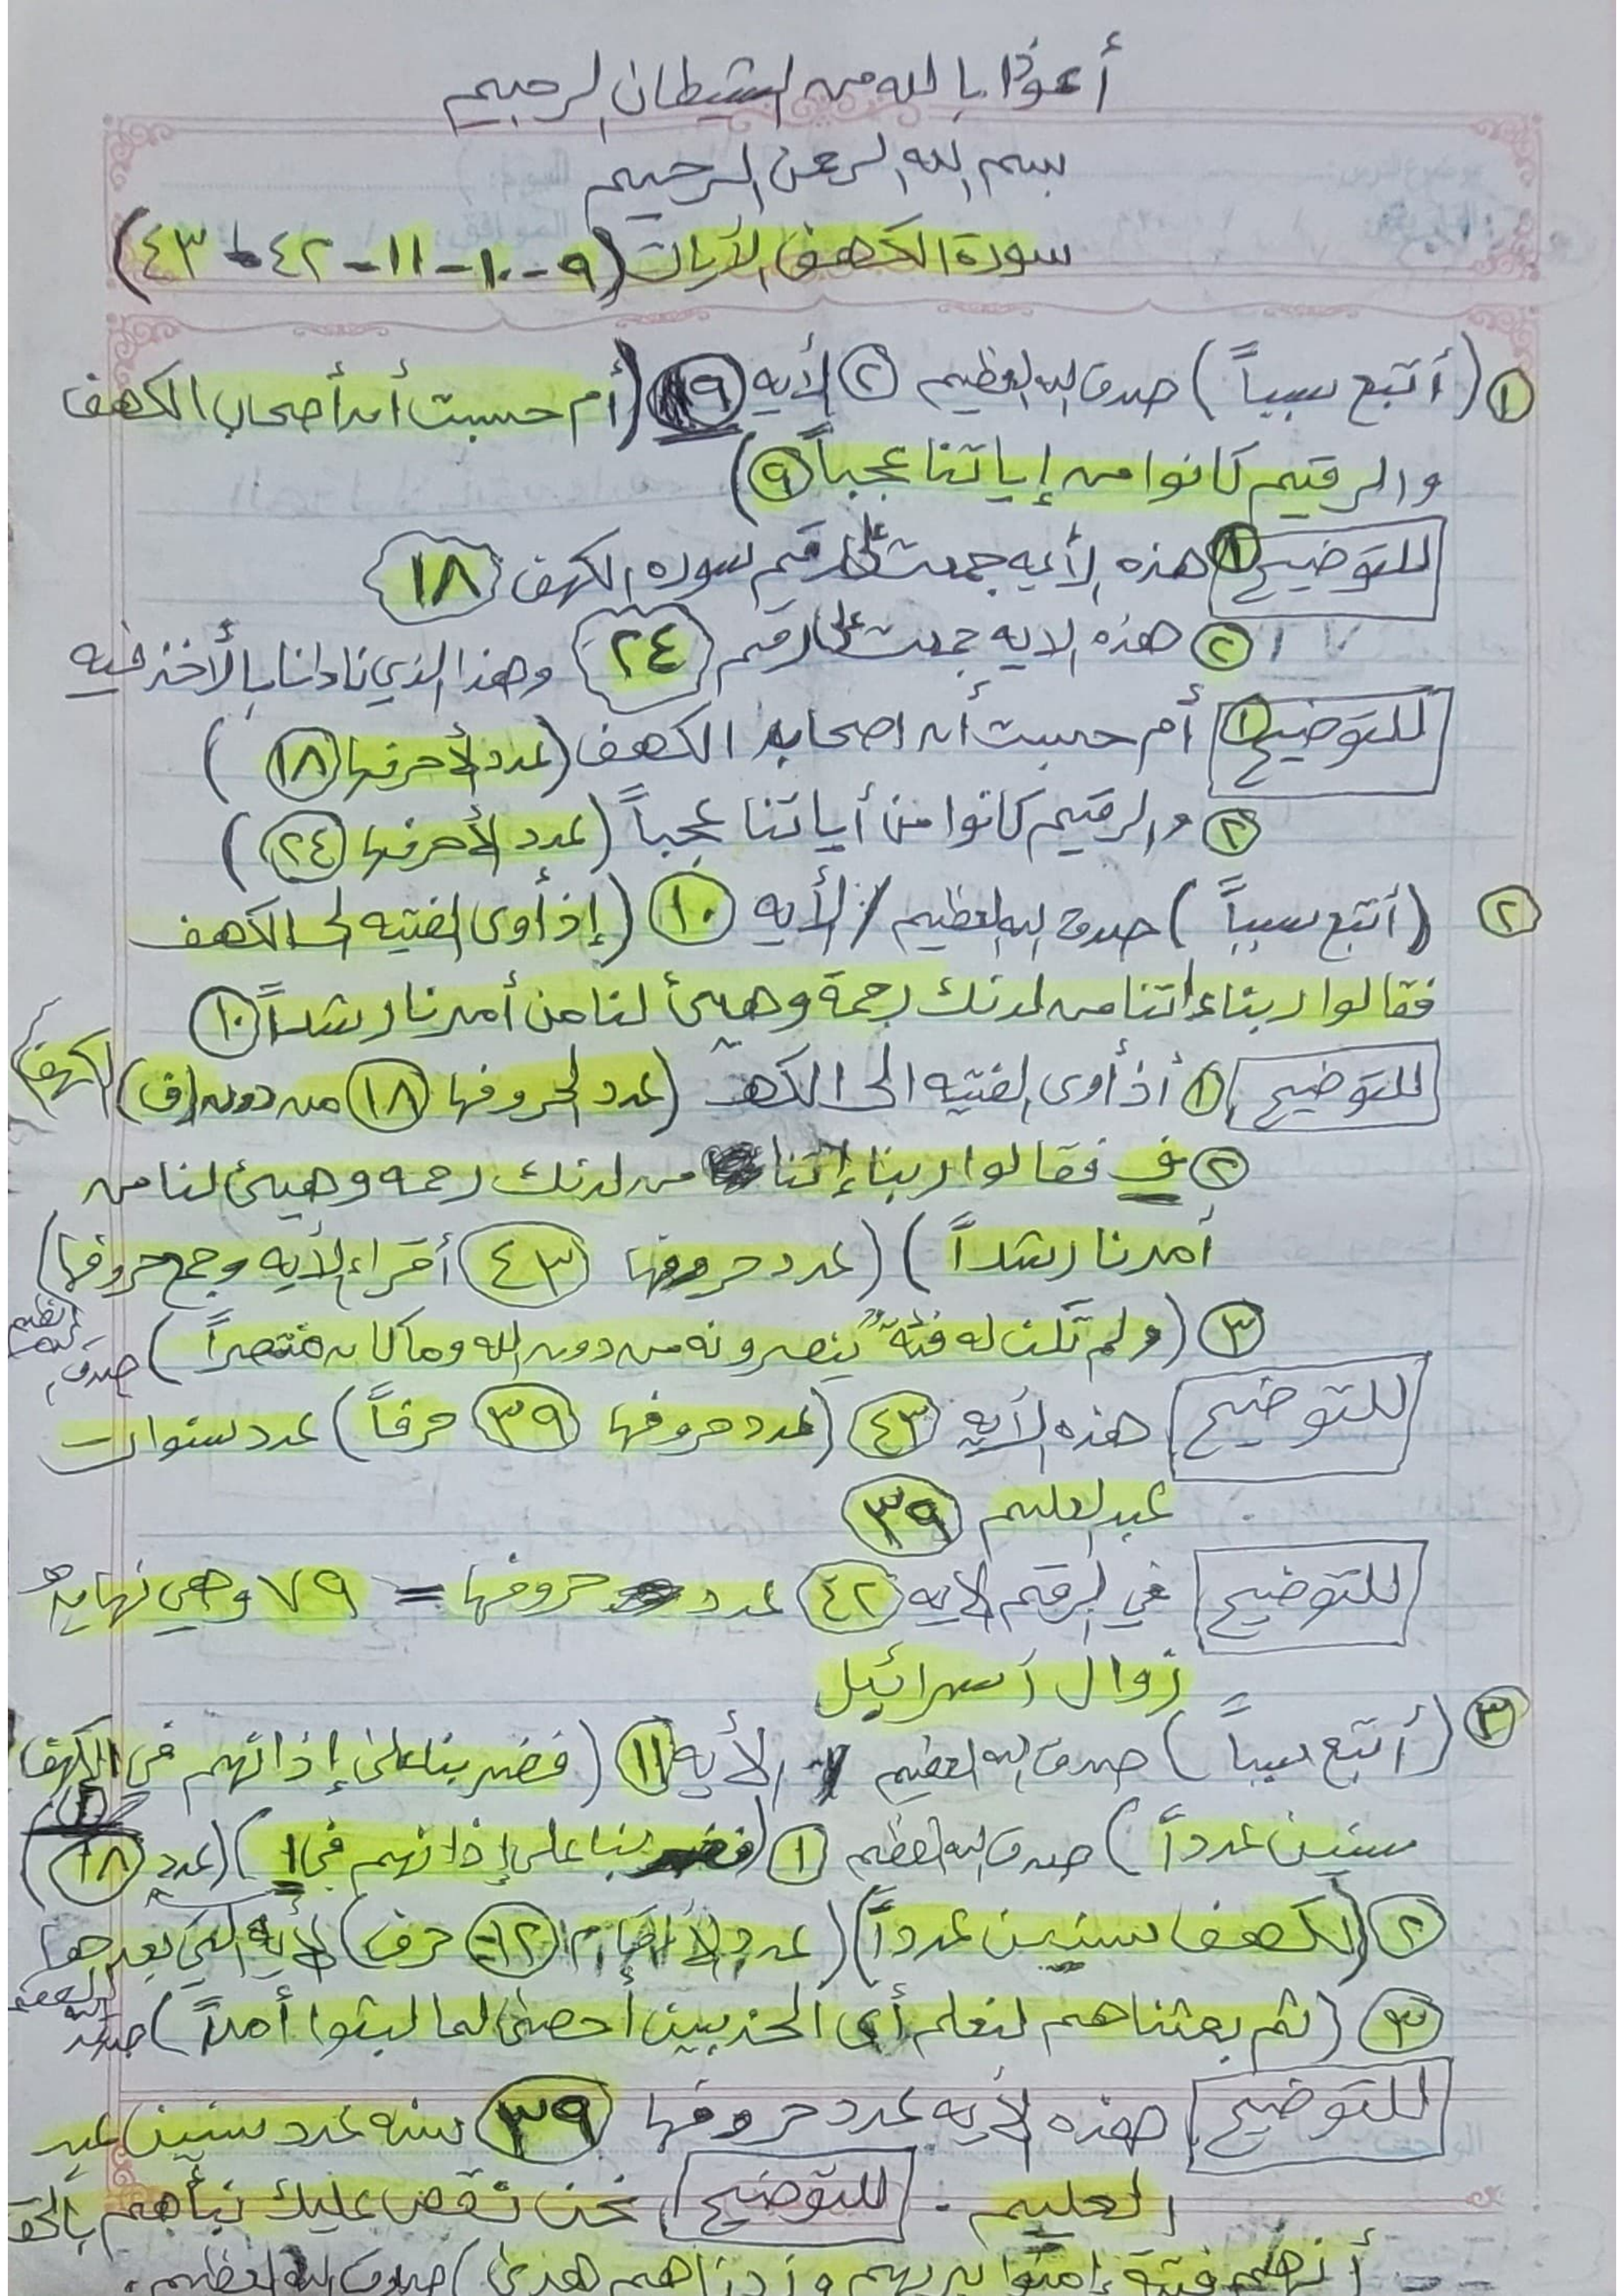 أعوذا بالله من الشيطان الرجيم
بسم الله الرحمن الرحيم
سورة الكهف الآيات (٩-١٠-١١-٤٢-٤٣)
١ (أتبع سبباً) صدق الله العظيم ٢ الأيه ٩ (أم حسبت أن أصحاب الكهف
والرقيم كانوا من إياتنا عجباً ٩)
للتوضيح ١ هذه الأيه جمعت على رقم سوره الكهف ١٨
٢ هذه الايه جمعت على رقم ٢٤ وهذا الذي نادانا بالأخذ فيه
للتوضيح ١ أم حسبت أن اصحاب الكهف (عدد لأحرفها ١٨)
٢ والرقيم كانوا من أياتنا عجباً (عدد لأحرفها ٢٤)
٢ (أتبع سبباً) صدق الله العظيم / الأيه ١٠ (إذ أوى الفتيه الى الكهف
فقالوا ربناء اتنا من لدنك رحمة وهيئ لنا من أمرنا رشداً ١٠
للتوضيح ١ أذ أوى الفتيه الى الكهـ (عدد لحروفها ١٨ من دون (ف) الكهف
٢ ف فقالوا ربنا إتنا من لدنك رحمه وهيئ لنا من
أمرنا رشداً) (عدد حروفها ٤٣ أقراء الأيه وجمع حروفها)
٣ (ولم تكن له فئة ينصرونه من دون الله وما كان منتصراً) صدق الله العظيم
للتوضيح هذه الأيه ٤٣ (عدد حروفها ٣٩ حرفاً) عدد سنوات
عبد العليم ٣٩
للتوضيح في الرقم الايه ٤٢ عدد حروفها = ٧٩ وهي نهايه
زوال أسرائيل
٣ (أتبع سبباً) صدق الله العظيم الأيه ١١ (فضربنا على إذانهم في الكهف
سنين عدداً) صدق الله العظيم ١ (فضربنا على إذانهم في ا) (عدد ١٨)
٢ (لكهف سنين عدداً) (عدد الأرقام ١٢ حرف) الأيه التي بعدها
٣ (ثم بعثناهم لنعلم أي الحزبين أحصى لما لبثوا أمداً) صدق الله العظيم
للتوضيح هذه الأيه عدد حروفها ٣٩ سنه عدد سنين عبد
العليم . للتوضيح نحن نقص عليك نبأهم بالحق
أنهم فتية إمنوا بربهم وزدناهم هدى) صدق الله العظيم.